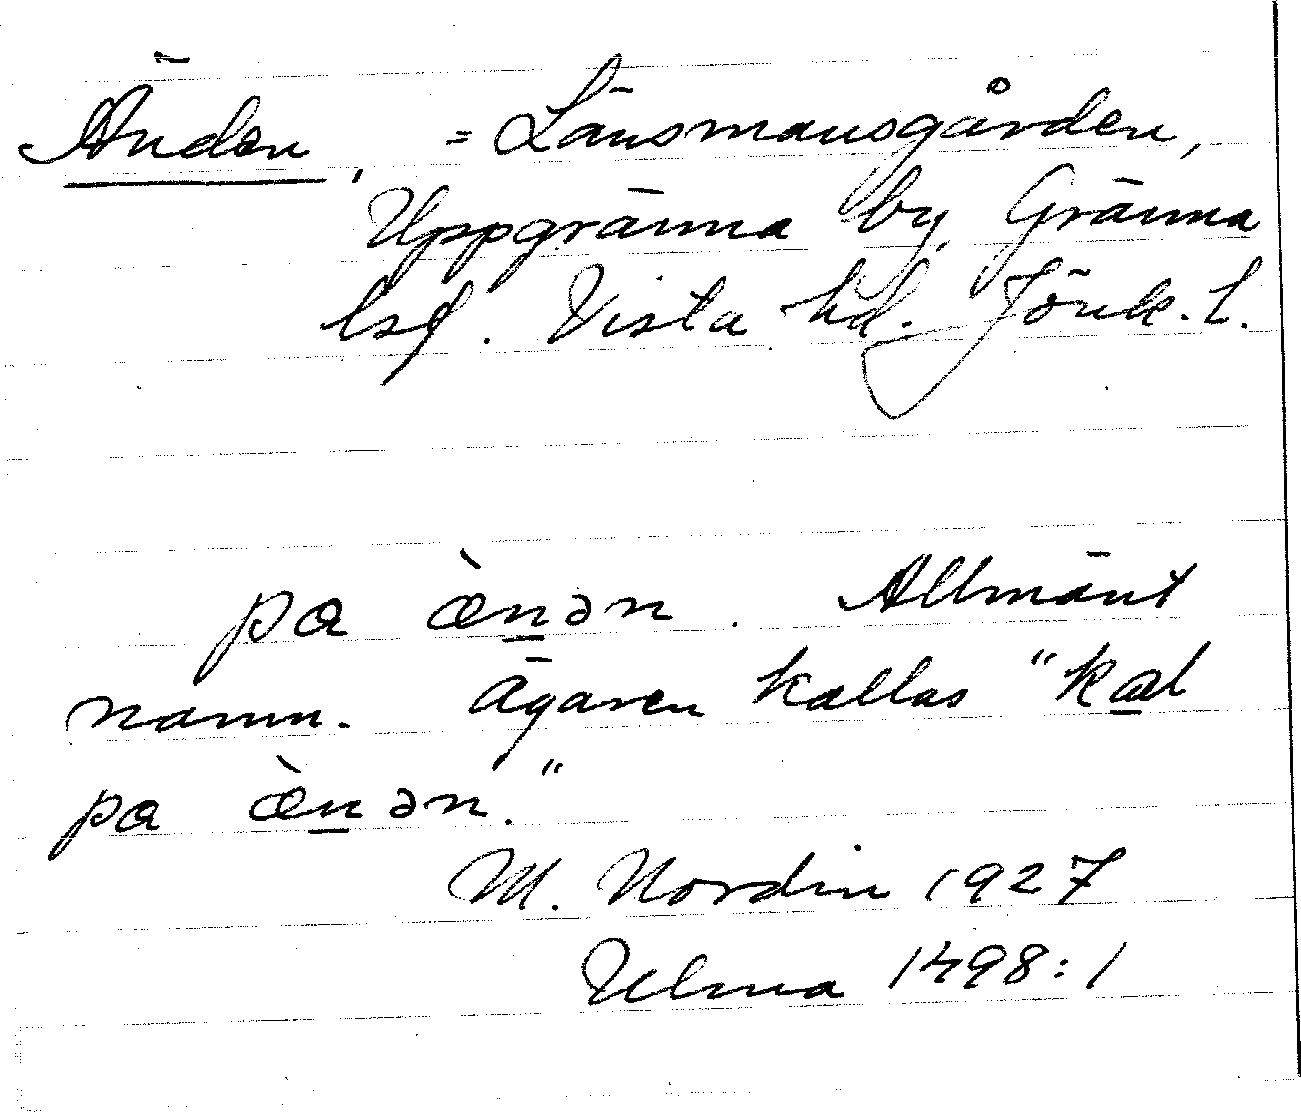 Änden, = Länsmansgården,
Uppgränna by, Gränna
lsf. Vista hd. Jönk. l.
pa æ̀n̲ən. Allmänt
namn. Ägaren kallas "ka̲l
pa æ̀n̲ən."
M. Nordin 1927
Ulma 1498:1